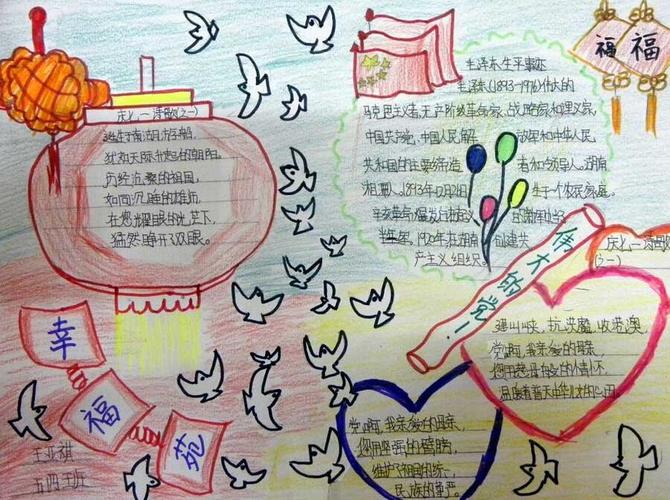 庆七一诗歌(之一)
诞生于南湖的方舟船,
犹如天际升起的朝阳。
历经沧桑的祖国,
如同沉睡的雄狮,
在您耀眼的光芒下,
猛然睁开了双眼。
幸
福
苑
王亚祺
五四班
毛泽东生平事迹
毛泽东(1893-1976)伟大的
马克思主义者,无产阶级革命家、战略家和理论家,
中国共产党、中国人民解放军和中华人民
共和国的主要缔造者和领导人。湖南
湘潭人。1893年12月26日生于一个农民家庭。
辛亥革命爆发后
半年。1920年在湖南创建共
产主义组织。
福
福
伟大的党!
庆七一诗歌
(之一)
建三峡,抗洪魔,收港澳,
党啊,我亲爱的母亲,
您用慈母般的情怀,
温暖着普天中华儿女的心田。
党啊,我亲爱的母亲,
您用坚强的臂膀,
维护了祖国的统一,
民族的尊严。